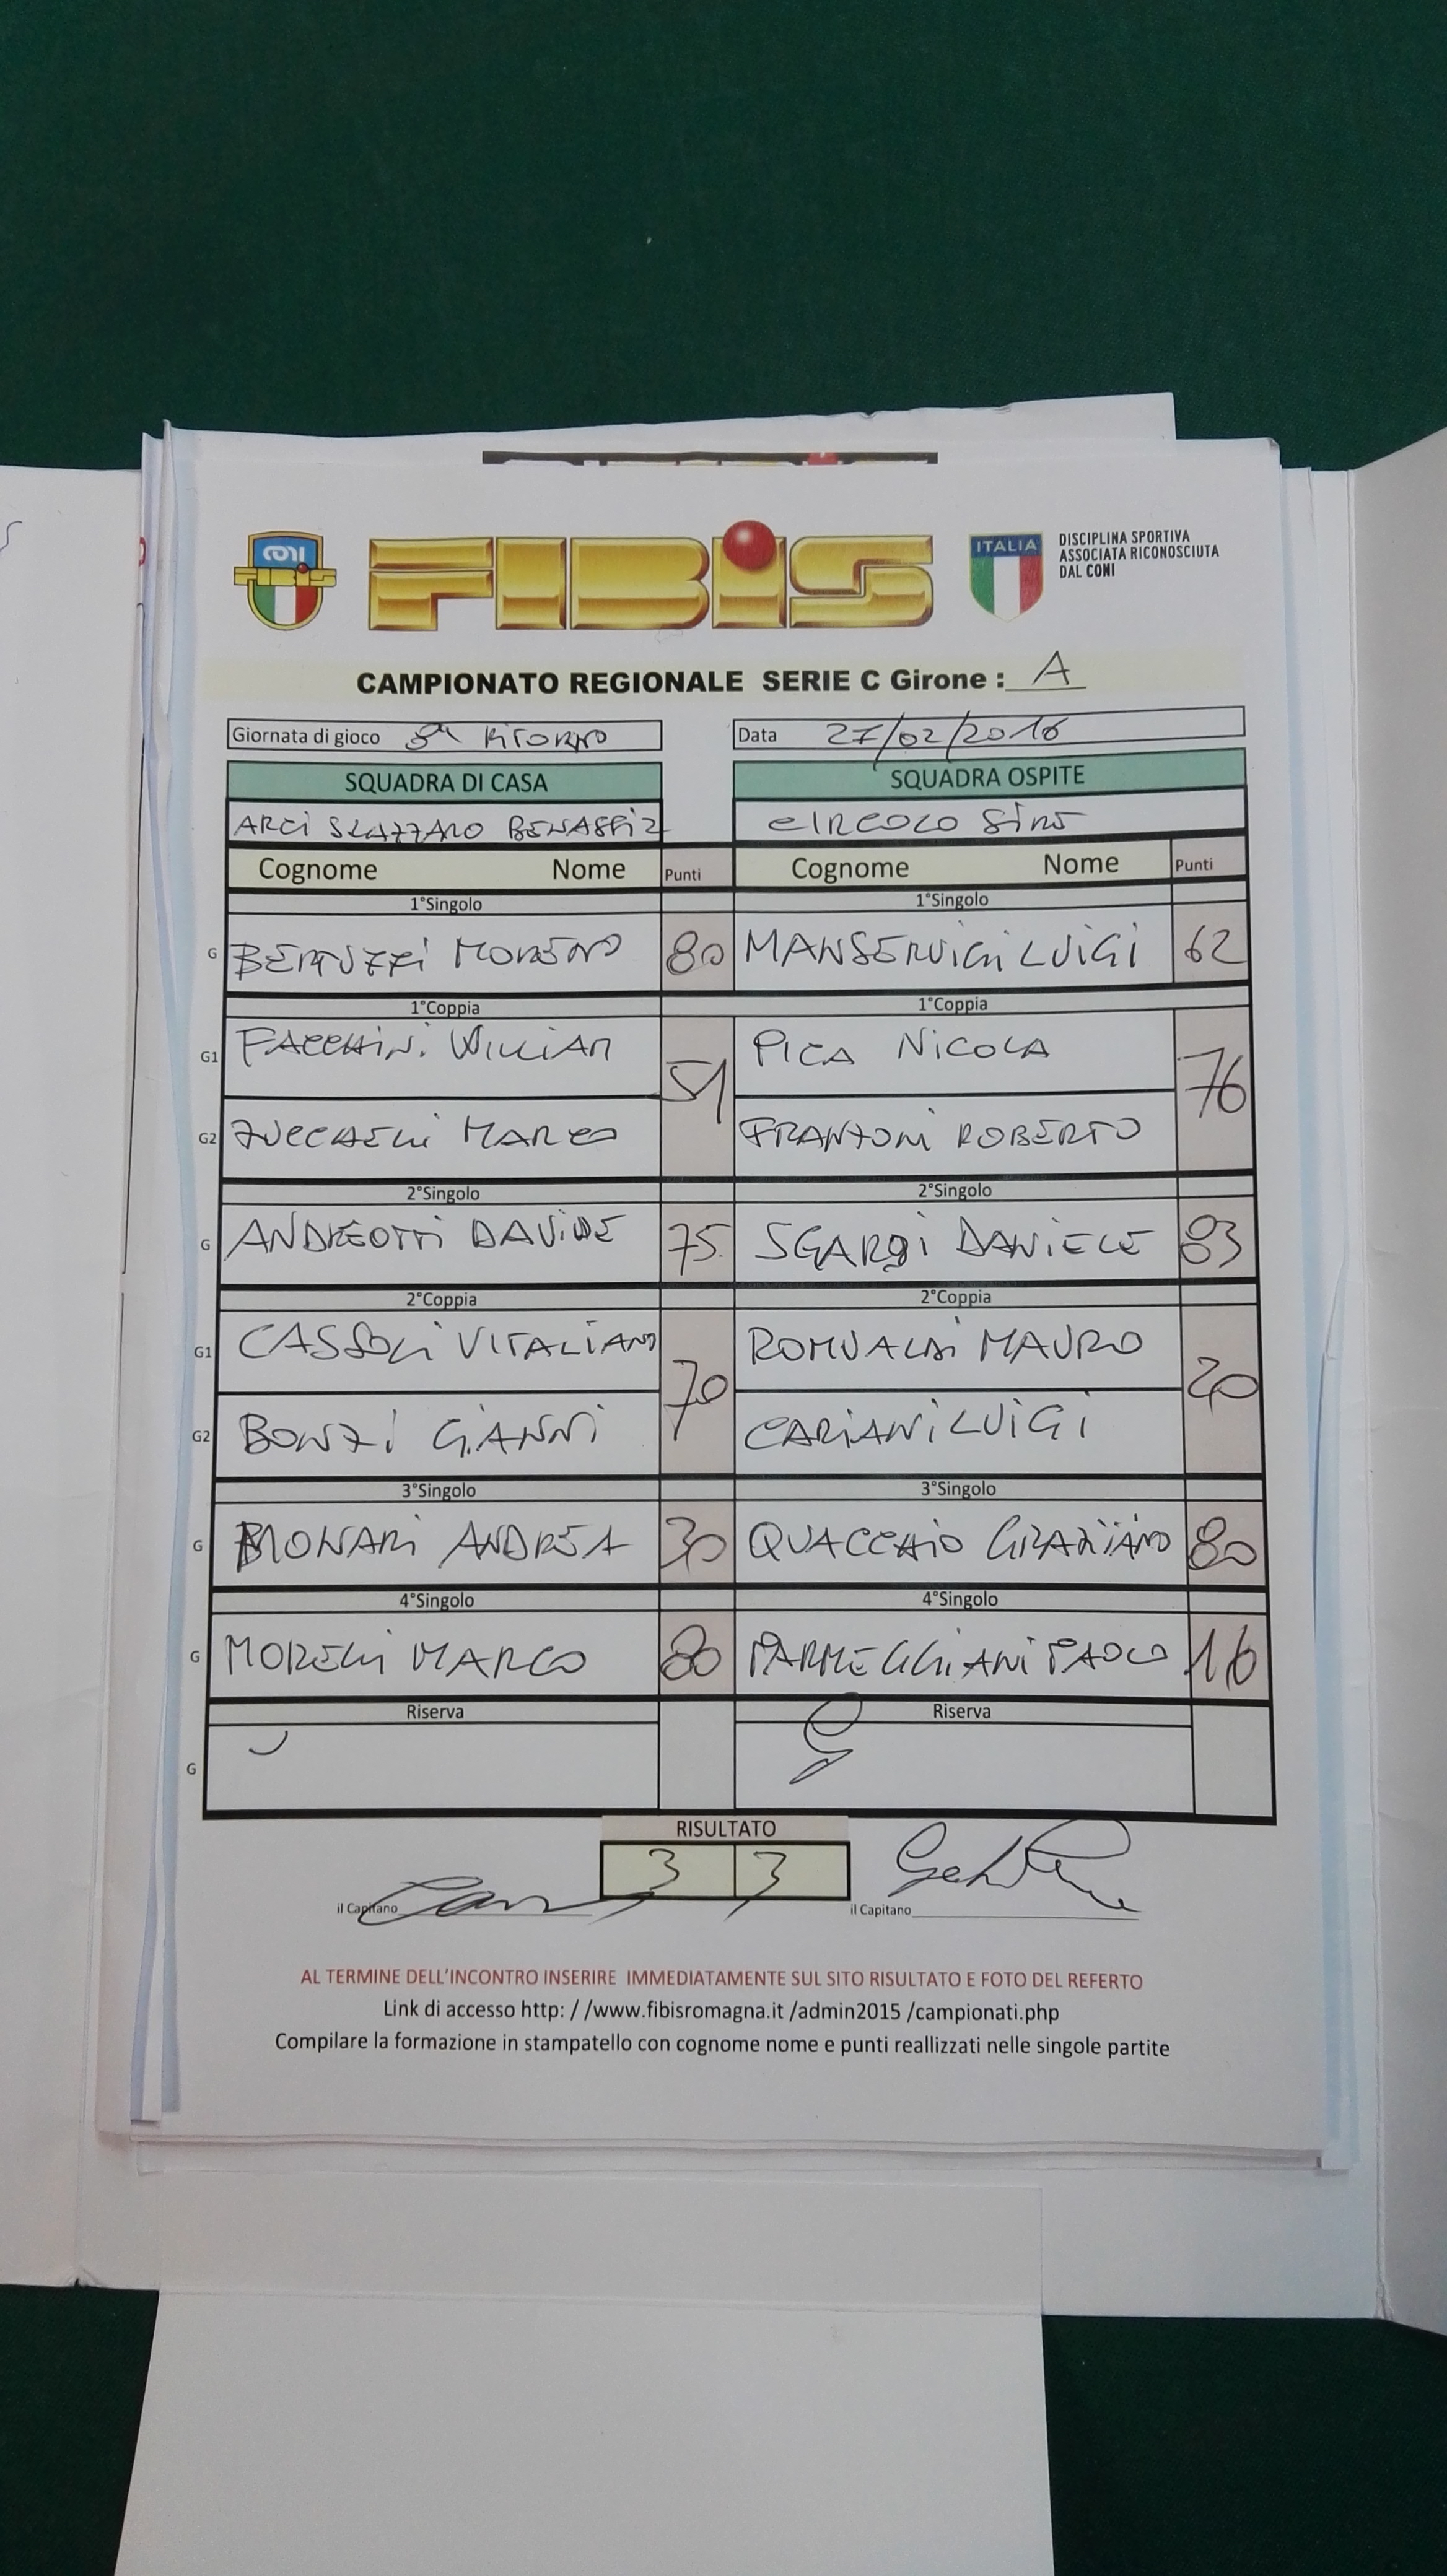 CONI
FIBiS
FIBiS
ITALIA
DISCIPLINA SPORTIVA
ASSOCIATA RICONOSCIUTA
DAL CONI
CAMPIONATO REGIONALE SERIE C Girone : A
Giornata di gioco RITORNO
Data 27/02/2016
SQUADRA DI CASA SQUADRA OSPITE
ARCI S.LAZZARO CIRCOLO
Cognome Nome Punti Cognome Nome Punti
1°Singolo 1°Singolo
G BERTUZZI MORENO 80 MANSERVIGI LUIGI 62
1°Coppia 1°Coppia
G1 FACCHINI WILLIAM 51 PICA NICOLA 76
G2 ZUCCHELLI MARCO FRANZONI ROBERTO
2°Singolo 2°Singolo
G ANDREOTTI DAVIDE 75 SGARGI DANIELE 83
2°Coppia 2°Coppia
G1 CASSOLI VITALIANO 70 ROMUALDI MAURO 20
G2 BONZI GIANNI CARIANI LUIGI
3°Singolo 3°Singolo
G MONARI ANDREA 30 QUACCHIO GRAZIANO 80
4°Singolo 4°Singolo
G MORELLI MARCO 80 PARMEGGIANI PAOLO 16
Riserva Riserva
G
RISULTATO
3 3
il Capitano il Capitano
AL TERMINE DELL'INCONTRO INSERIRE IMMEDIATAMENTE SUL SITO RISULTATO E FOTO DEL REFERTO
Link di accesso http: / /www.fibisromagna.it /admin2015 /campionati.php
Compilare la formazione in stampatello con cognome nome e punti reallizzati nelle singole partite